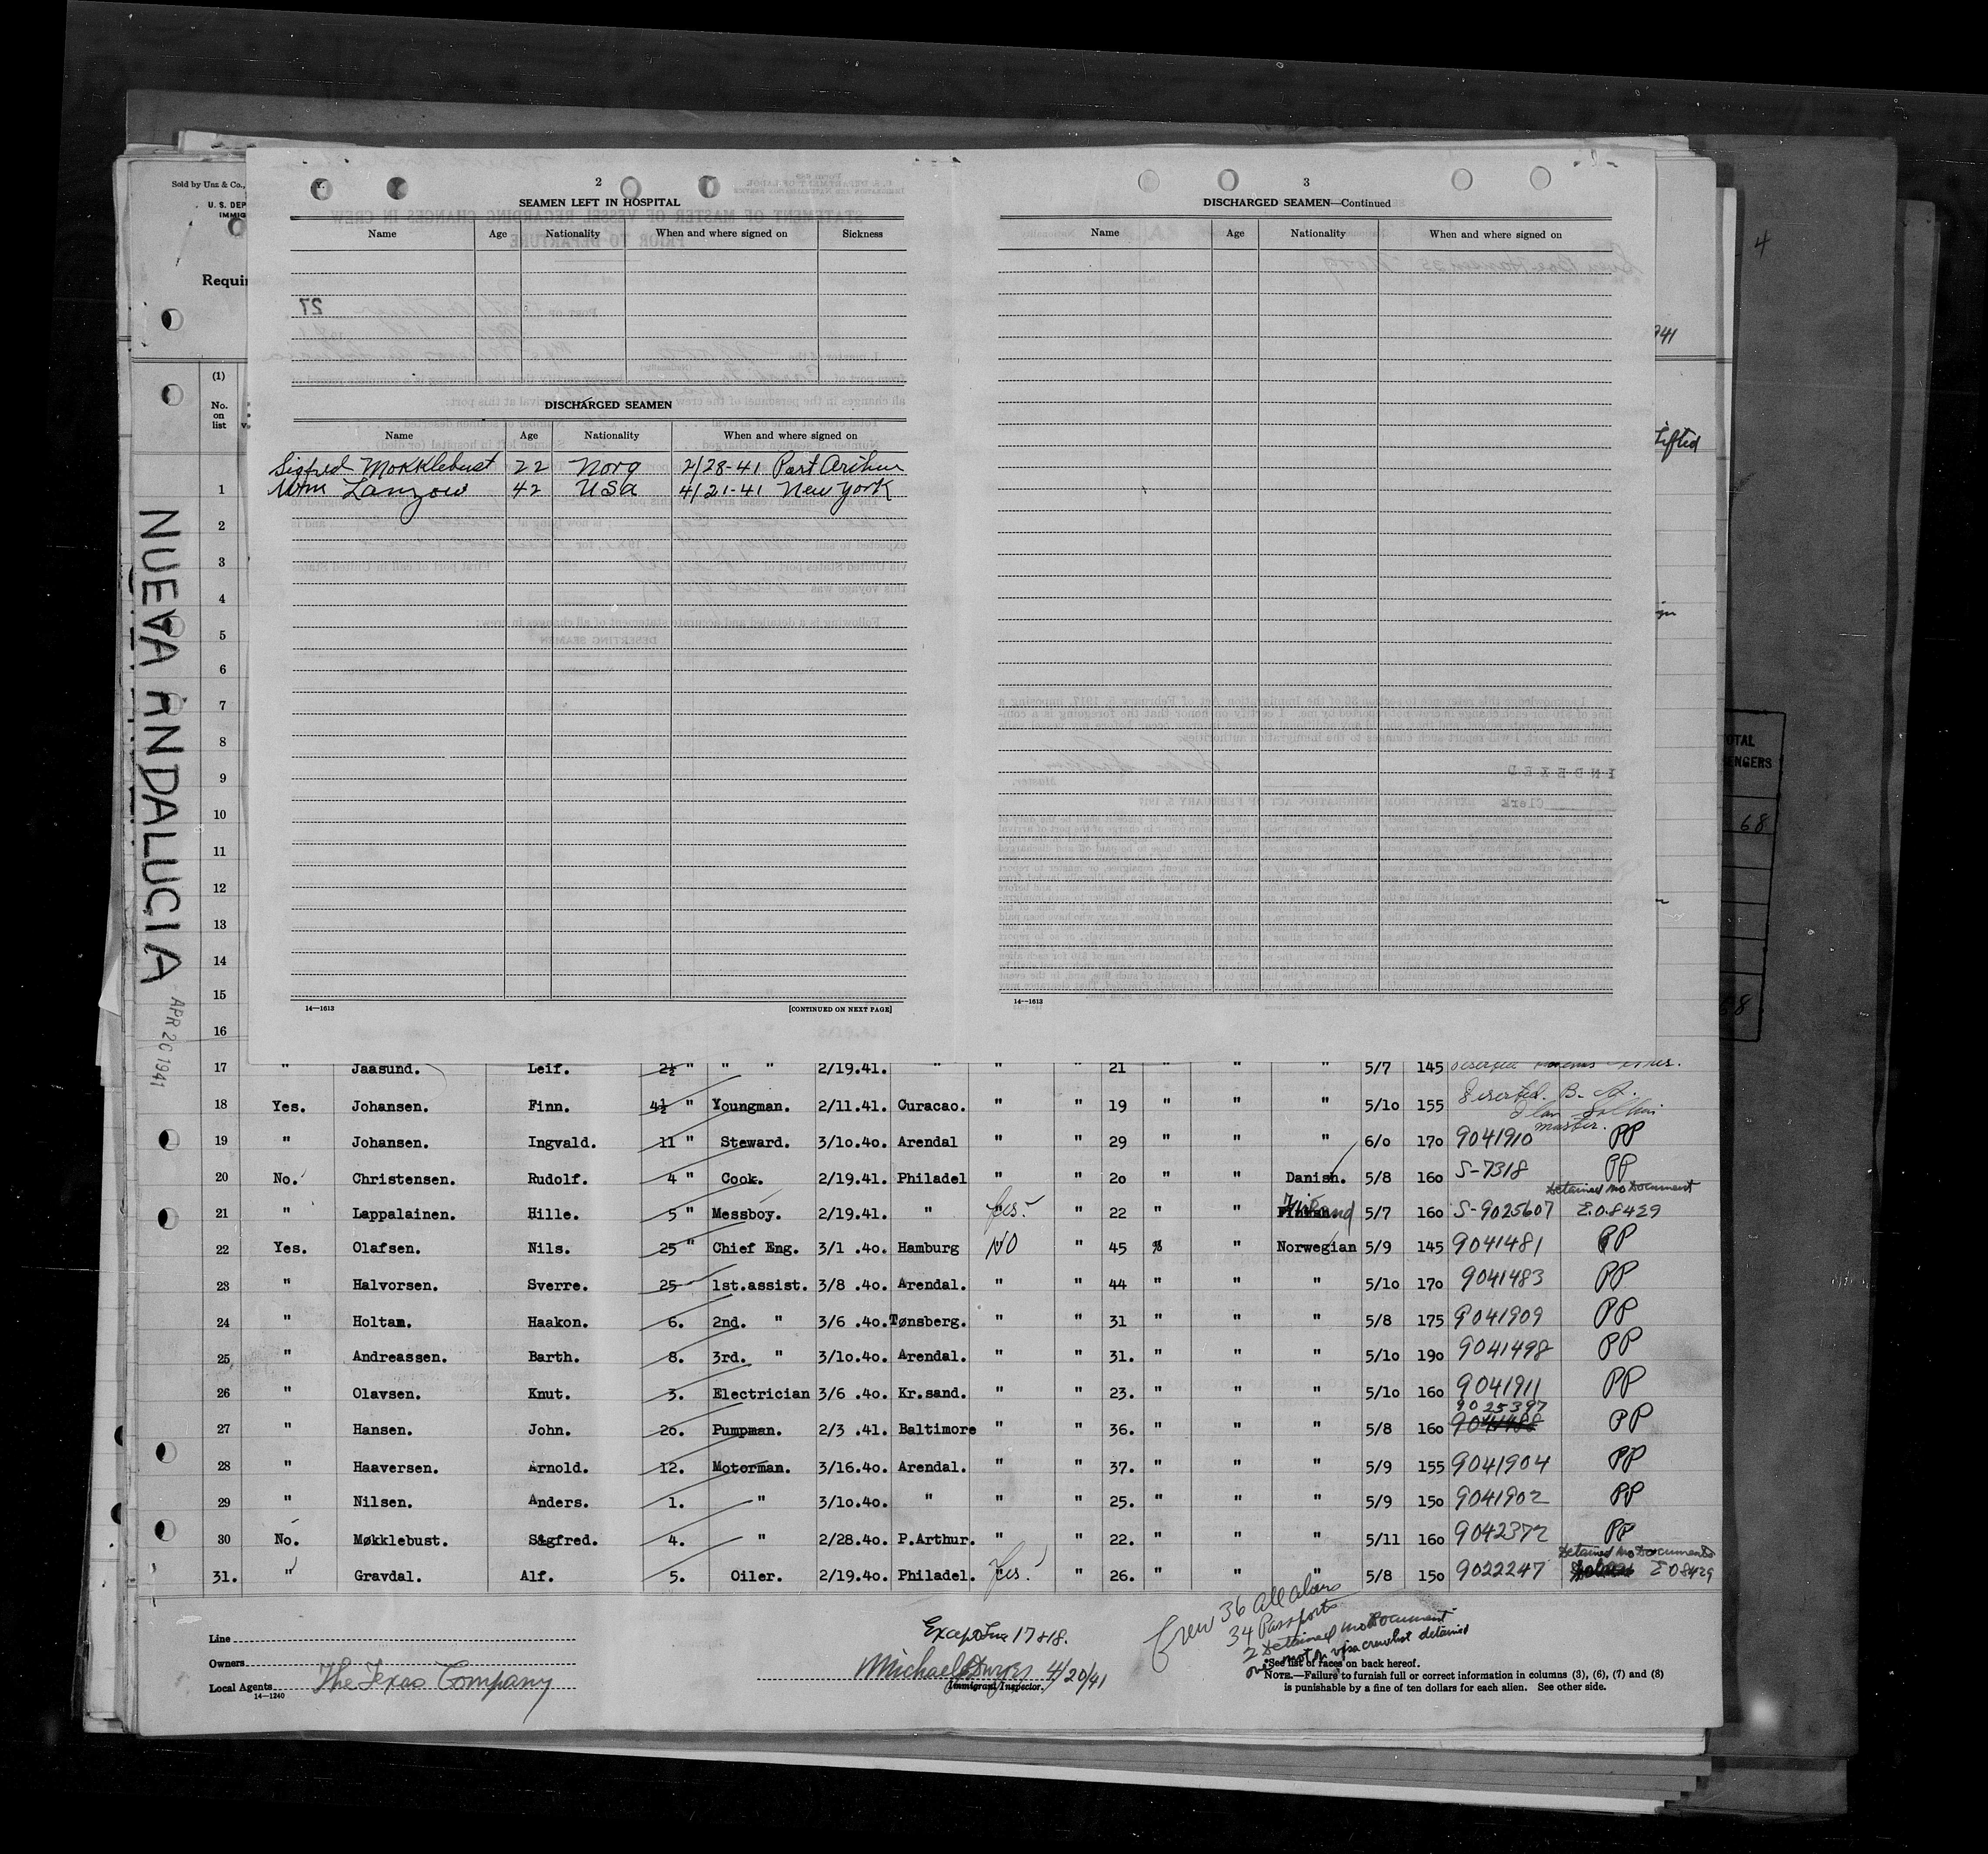 Sold by Unz & Co.,
U. S. DEP
IMMIG
Requir
(1)
No.
on
list
NUEVA ANDALUCIA
APR 20 1941
2
SEAMEN LEFT IN HOSPITAL
Name Age Nationality When and where signed on Sickness
DISCHARGED SEAMEN
Name Age Nationality When and where signed on
Sigfred Mokklebust 22 Norg 2/28-41 Port Arthur
Wm Lanzow 42 USA 4/21-41 New York
14—1613 [CONTINUED ON NEXT PAGE]
3
DISCHARGED SEAMEN—Continued
Name Age Nationality When and where signed on
14—1613
4
941
Lifted
TOTAL
68
68
1
2
3
4
5
6
7
8
9
10
11
12
13
14
15
16
17 " Jaasund. Leif. 2½ " " " 2/19.41. " " " 21 " " " 5/7 145
18 Yes. Johansen. Finn. 4½ " Youngman. 2/11.41. Curacao. " " 19 " " " 5/10 155 Deserted. B. A.
master.
19 " Johansen. Ingvald. 11 " Steward. 3/10.40. Arendal " " 29 " " " 6/0 170 9041910 PP
20 No. Christensen. Rudolf. 4 " Cook. 2/19.41. Philadel " " 20 " " Danish. 5/8 160 S-7318 PP
Detained No Document
21 " Lappalainen. Hille. 5 " Messboy. 2/19.41. " Yes. " 22 " " 5/7 160 S-9025607 E.O.8429
22 Yes. Olafsen. Nils. 25 " Chief Eng. 3/1 .40. Hamburg NO " 45 " " Norwegian 5/9 145 9041481 PP
23 " Halvorsen. Sverre. 25 1st.assist. 3/8 .40. Arendal. " " 44 " " " 5/10 170 9041483 PP
24 " Holtam. Haakon. 6. 2nd. " 3/6 .40. Tønsberg. " " 31 " " " 5/8 175 9041909 PP
25 " Andreassen. Barth. 8. 3rd. " 3/10.40. Arendal. " " 31. " " " 5/10 190 9041498 PP
26 " Olavsen. Knut. 3. Electrician 3/6 .40. Kr.sand. " " 23. " " " 5/10 160 9041911 PP
9025397
27 " Hansen. John. 20. Pumpman. 2/3 .41. Baltimore " " 36. " " " 5/8 160 9041488 PP
28 " Haaversen. Arnold. 12. Motorman. 3/16.40. Arendal. " " 37. " " " 5/9 155 9041904 PP
29 " Nilsen. Anders. 1. " 3/10.40. " " " 25. " " " 5/9 150 9041902 PP
30 No. Møkklebust. Sigfred. 4. " 2/28.40. P.Arthur. " " 22. " " " 5/11 160 9042372 PP
Detained No Documents
31. " Gravdal. Alf. 5. Oiler. 2/19.40. Philadel. Yes. " 26. " " " 5/8 150 9022247 E O 8429
Line
Owners
Local Agents The Texas Company
14—1240
Except Line 17 & 18.
Michael Dwyer 4/20/41
Immigrant Inspector.
Crew 36 all aliens
34 Passports
2 Detained no Document
one not on visa crewlist detained
*See list of races on back hereof.
NOTE.—Failure to furnish full or correct information in columns (3), (6), (7) and (8)
is punishable by a fine of ten dollars for each alien. See other side.